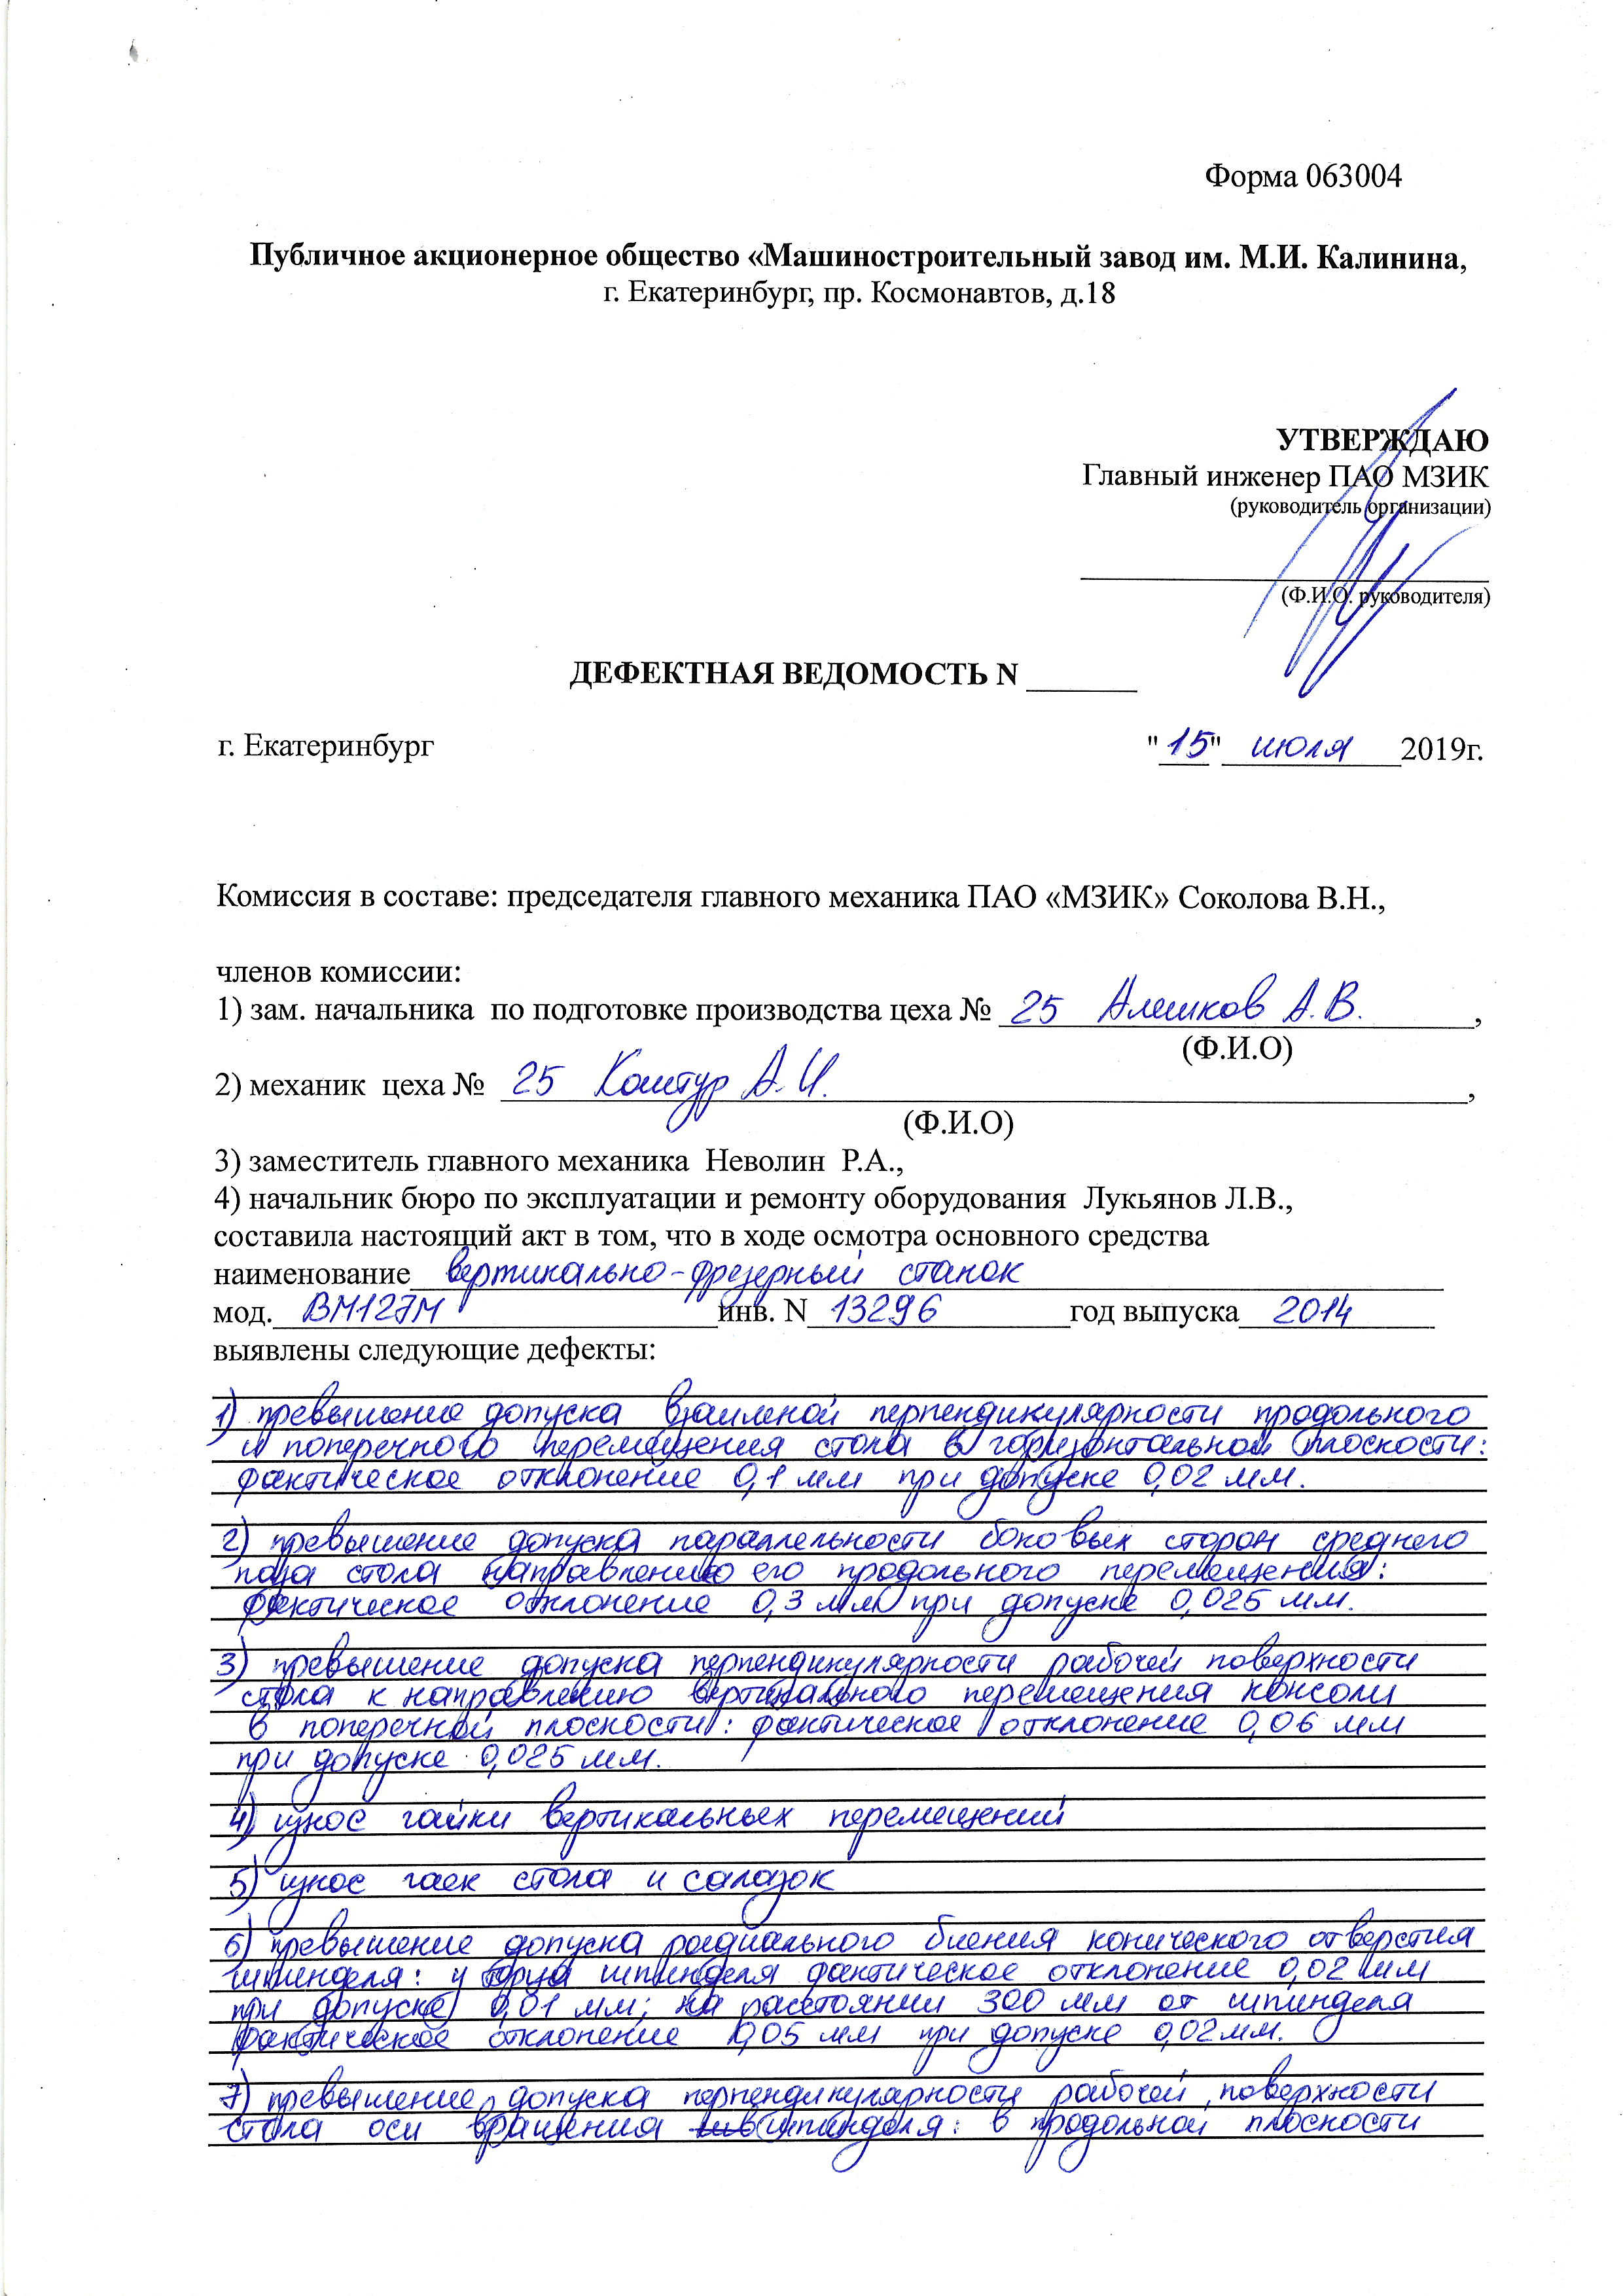 Форма 063004
Публичное акционерное общество «Машиностроительный завод им. М.И. Калинина,
г. Екатеринбург, пр. Космонавтов, д.18
УТВЕРЖДАЮ
Главный инженер ПАО МЗИК
(руководитель организации)
(Ф.И.О. руководителя)
ДЕФЕКТНАЯ ВЕДОМОСТЬ N ______
г. Екатеринбург "15" июля 2019г.
Комиссия в составе: председателя главного механика ПАО «МЗИК» Соколова В.Н.,
членов комиссии:
1) зам. начальника по подготовке производства цеха № 25 Алешков А.В.,
(Ф.И.О)
2) механик цеха № 25 Коштур А.И.,
(Ф.И.О)
3) заместитель главного механика Неволин Р.А.,
4) начальник бюро по эксплуатации и ремонту оборудования Лукьянов Л.В.,
составила настоящий акт в том, что в ходе осмотра основного средства
наименование вертикально-фрезерный станок
мод. ВМ127М инв. N 13296 год выпуска 2014
выявлены следующие дефекты:
1) превышение допуска взаимной перпендикулярности продольного
и поперечного перемещения стола в горизонтальной плоскости:
фактическое отклонение 0,1 мм при допуске 0,02 мм.
2) превышение допуска параллельности боковых сторон среднего
паза стола направлению его продольного перемещения:
фактическое отклонение 0,3 мм при допуске 0,025 мм.
3) превышение допуска перпендикулярности рабочей поверхности
стола к направлению вертикального перемещения консоли
в поперечной плоскости: фактическое отклонение 0,06 мм
при допуске 0,025 мм.
4) износ гайки вертикальных перемещений
5) износ гаек стола и салазок
6) превышение допуска радиального биения конического отверстия
шпинделя: у торца шпинделя фактическое отклонение 0,02 мм
при допуске 0,01 мм; на расстоянии 300 мм от шпинделя
фактическое отклонение 0,05 мм при допуске 0,02 мм.
7) превышение допуска перпендикулярности рабочей поверхности
стола оси вращения шпинделя: в продольной плоскости